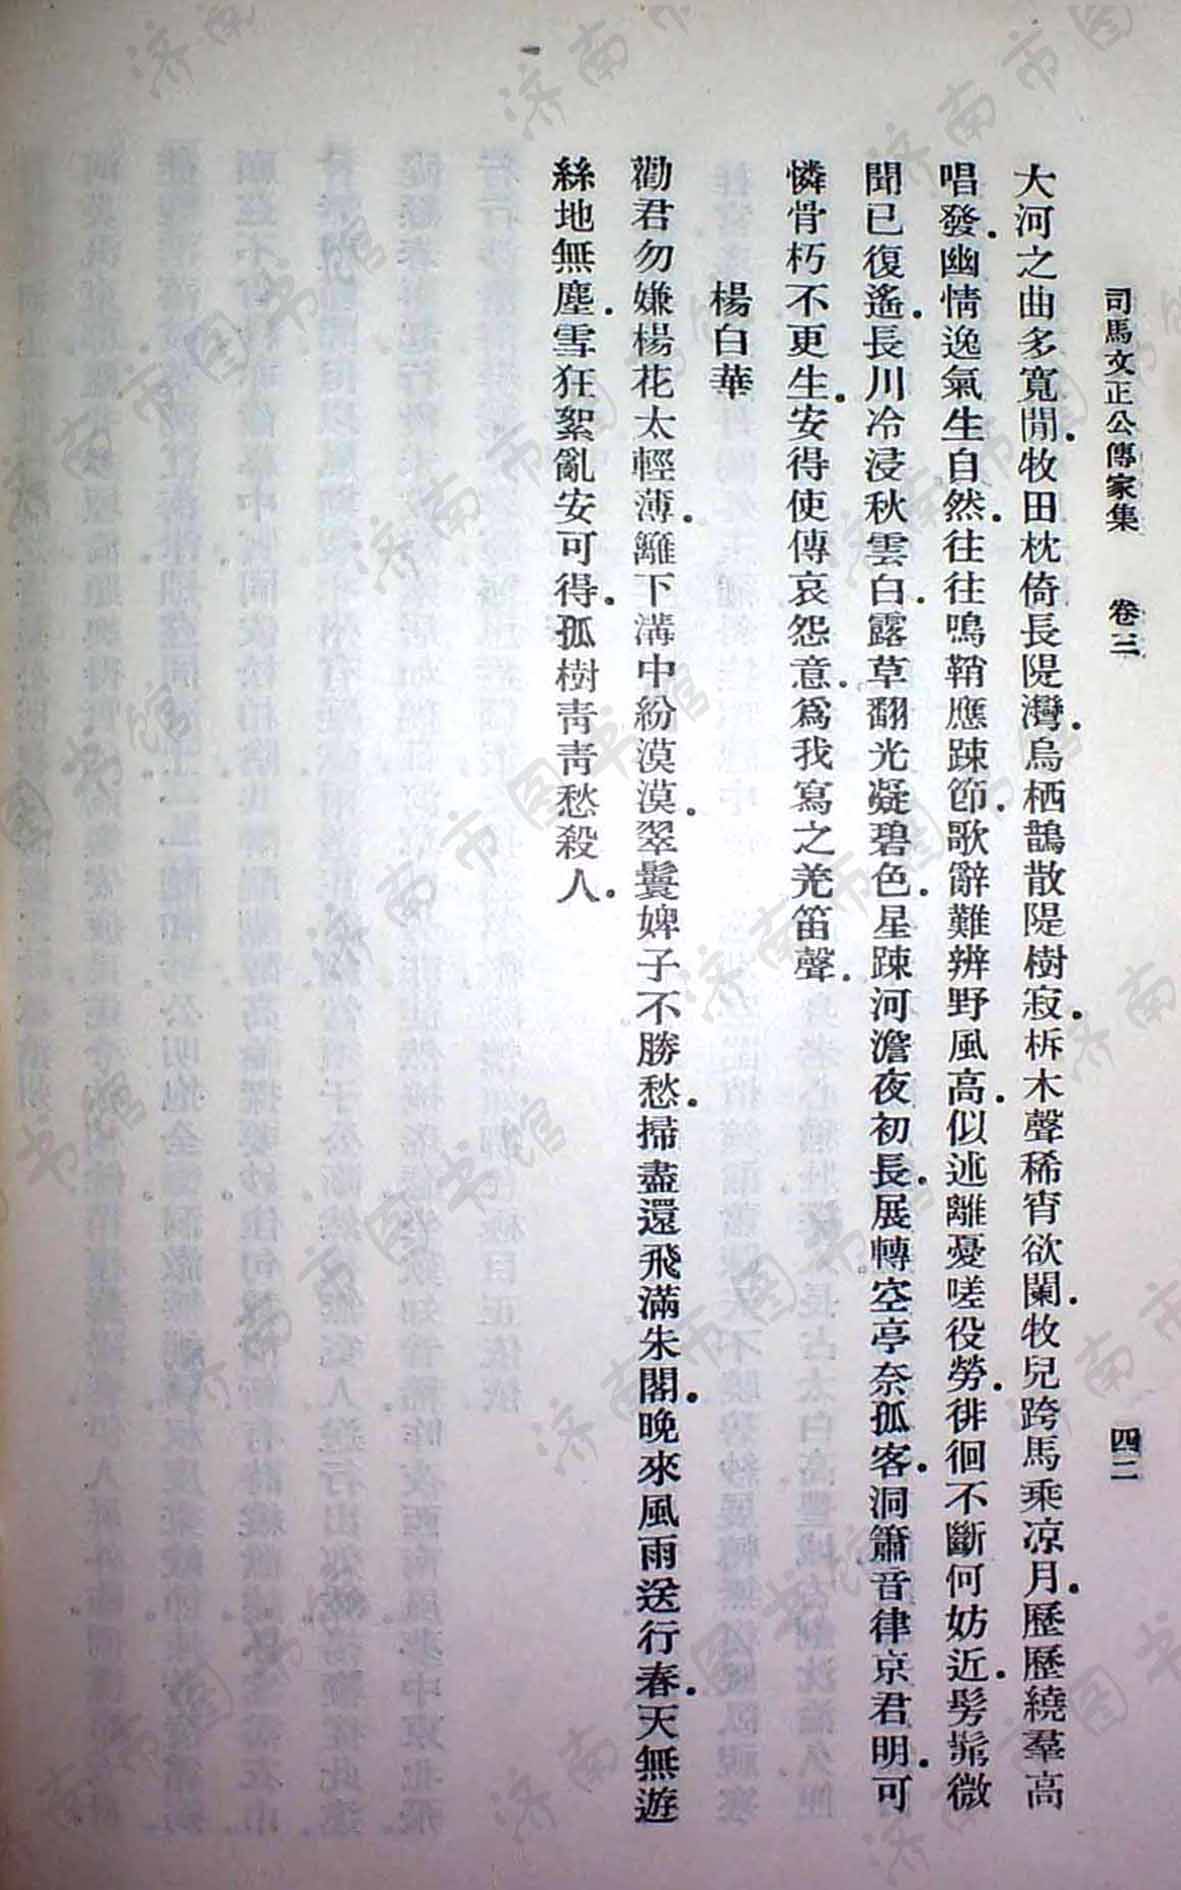 司馬文正公傳家集　卷三　四二
大河之曲多寬閒．牧田枕倚長隄灣．烏栖鵲散隄樹寂．柝木聲稀宵欲闌．牧兒跨馬乘凉月．歷歷繞羣高
唱發．幽情逸氣生自然．往往鳴鞘應踈節．歌辭難辨野風高．似述離憂嗟役勞．徘徊不斷何妨近．髣髴微
聞已復遙．長川冷浸秋雲白．露草翻光凝碧色．星踈河澹夜初長．展轉空亭奈孤客．洞簫音律京君明．可
憐骨朽不更生．安得使傳哀怨意．爲我寫之羌笛聲．
楊白華
勸君勿嫌楊花太輕薄．籬下溝中紛漠漠．翠鬟婢子不勝愁．掃盡還飛滿朱閣．晚來風雨送行春．天無遊
絲地無塵．雪狂絮亂安可得．孤樹青青愁殺人．
济南市图书馆